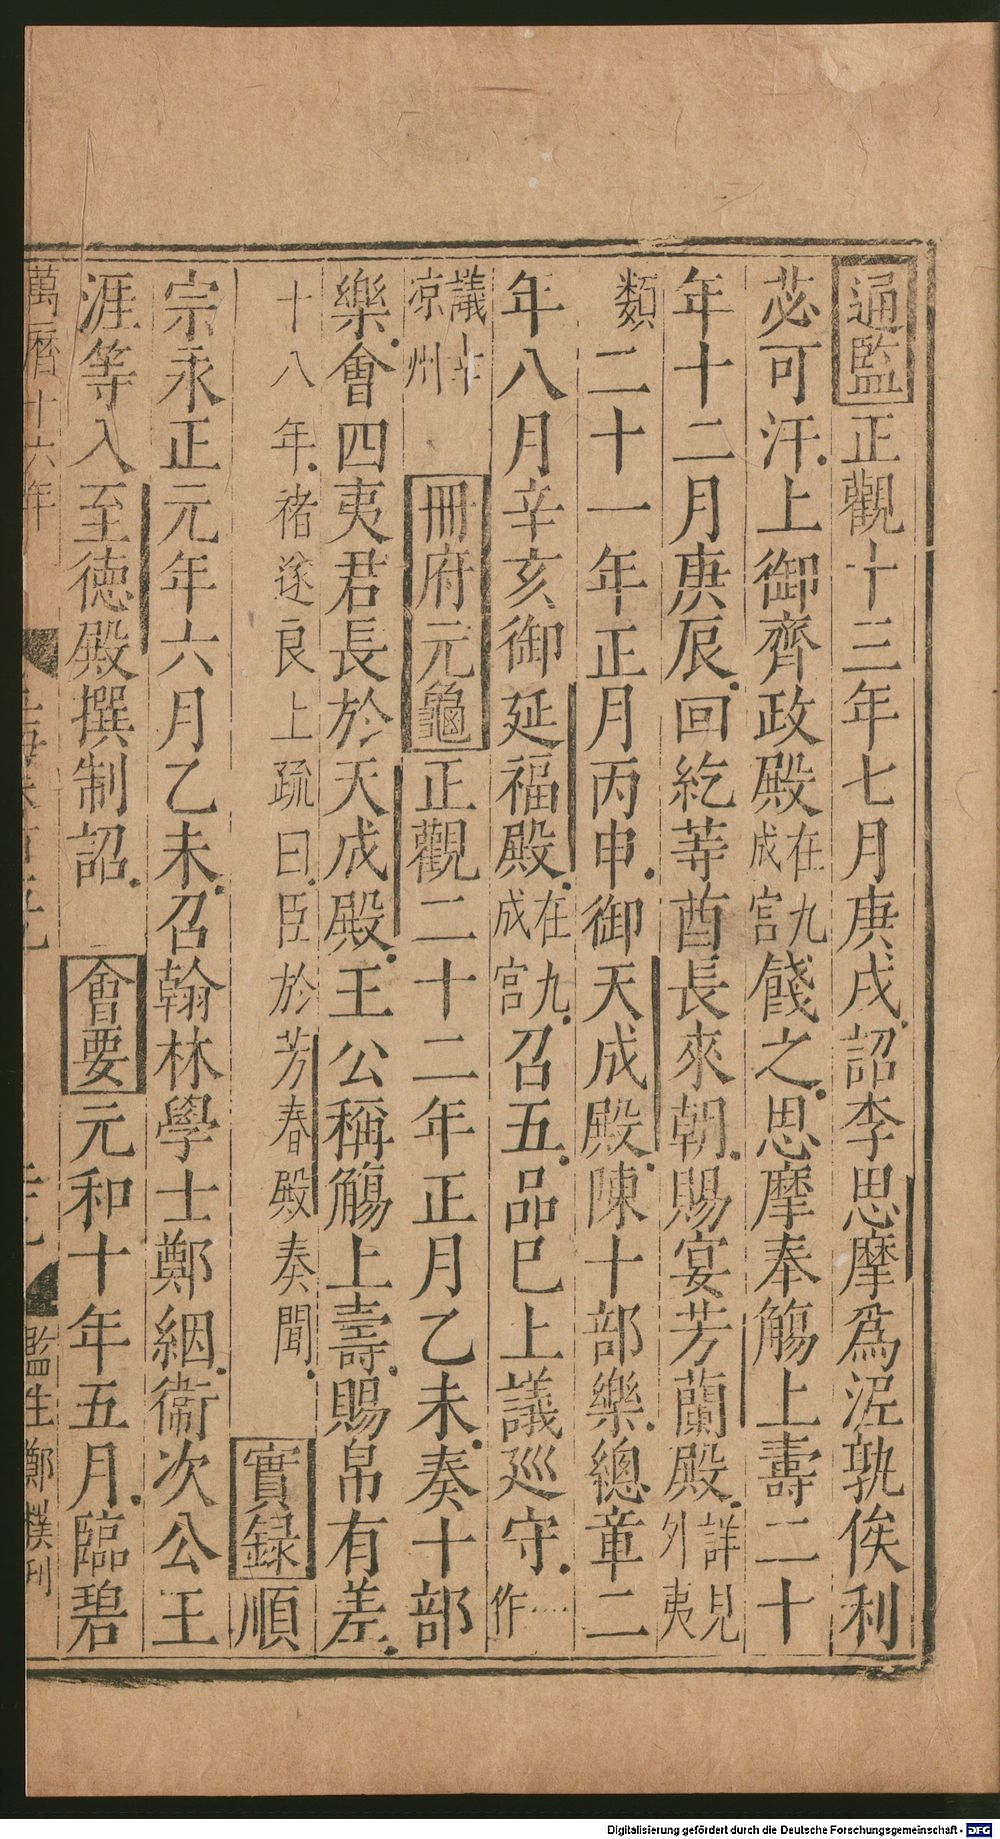 通監正觀十三年七月庚戌詔李思摩爲泥孰俟利
苾可汗上御齊政殿在九成宮餞之思摩奉觴上壽二十
年十二月庚辰回紇等酋長來朝賜宴芳蘭殿詳見外夷
類二十一年正月丙申御天成殿陳十部樂總章二
年八月辛亥御延福殿在九成宮召五品巳上議巡守一作
議幸凉州冊府元龜正觀二十二年正月乙未奏十部
樂會四夷君長於天成殿王公稱觴上壽賜帛有差
十八年禇遂良上疏曰臣於芳春殿奏聞實録順
宗永正元年六月乙未召翰林學士鄭絪衞次公王
涯等入至德殿撰制詔會要元和十年五月臨碧
萬曆十六年
監生鄭樸刊
Digitalisierung gefördert durch die Deutsche Forschungsgemeinschaft - DFG